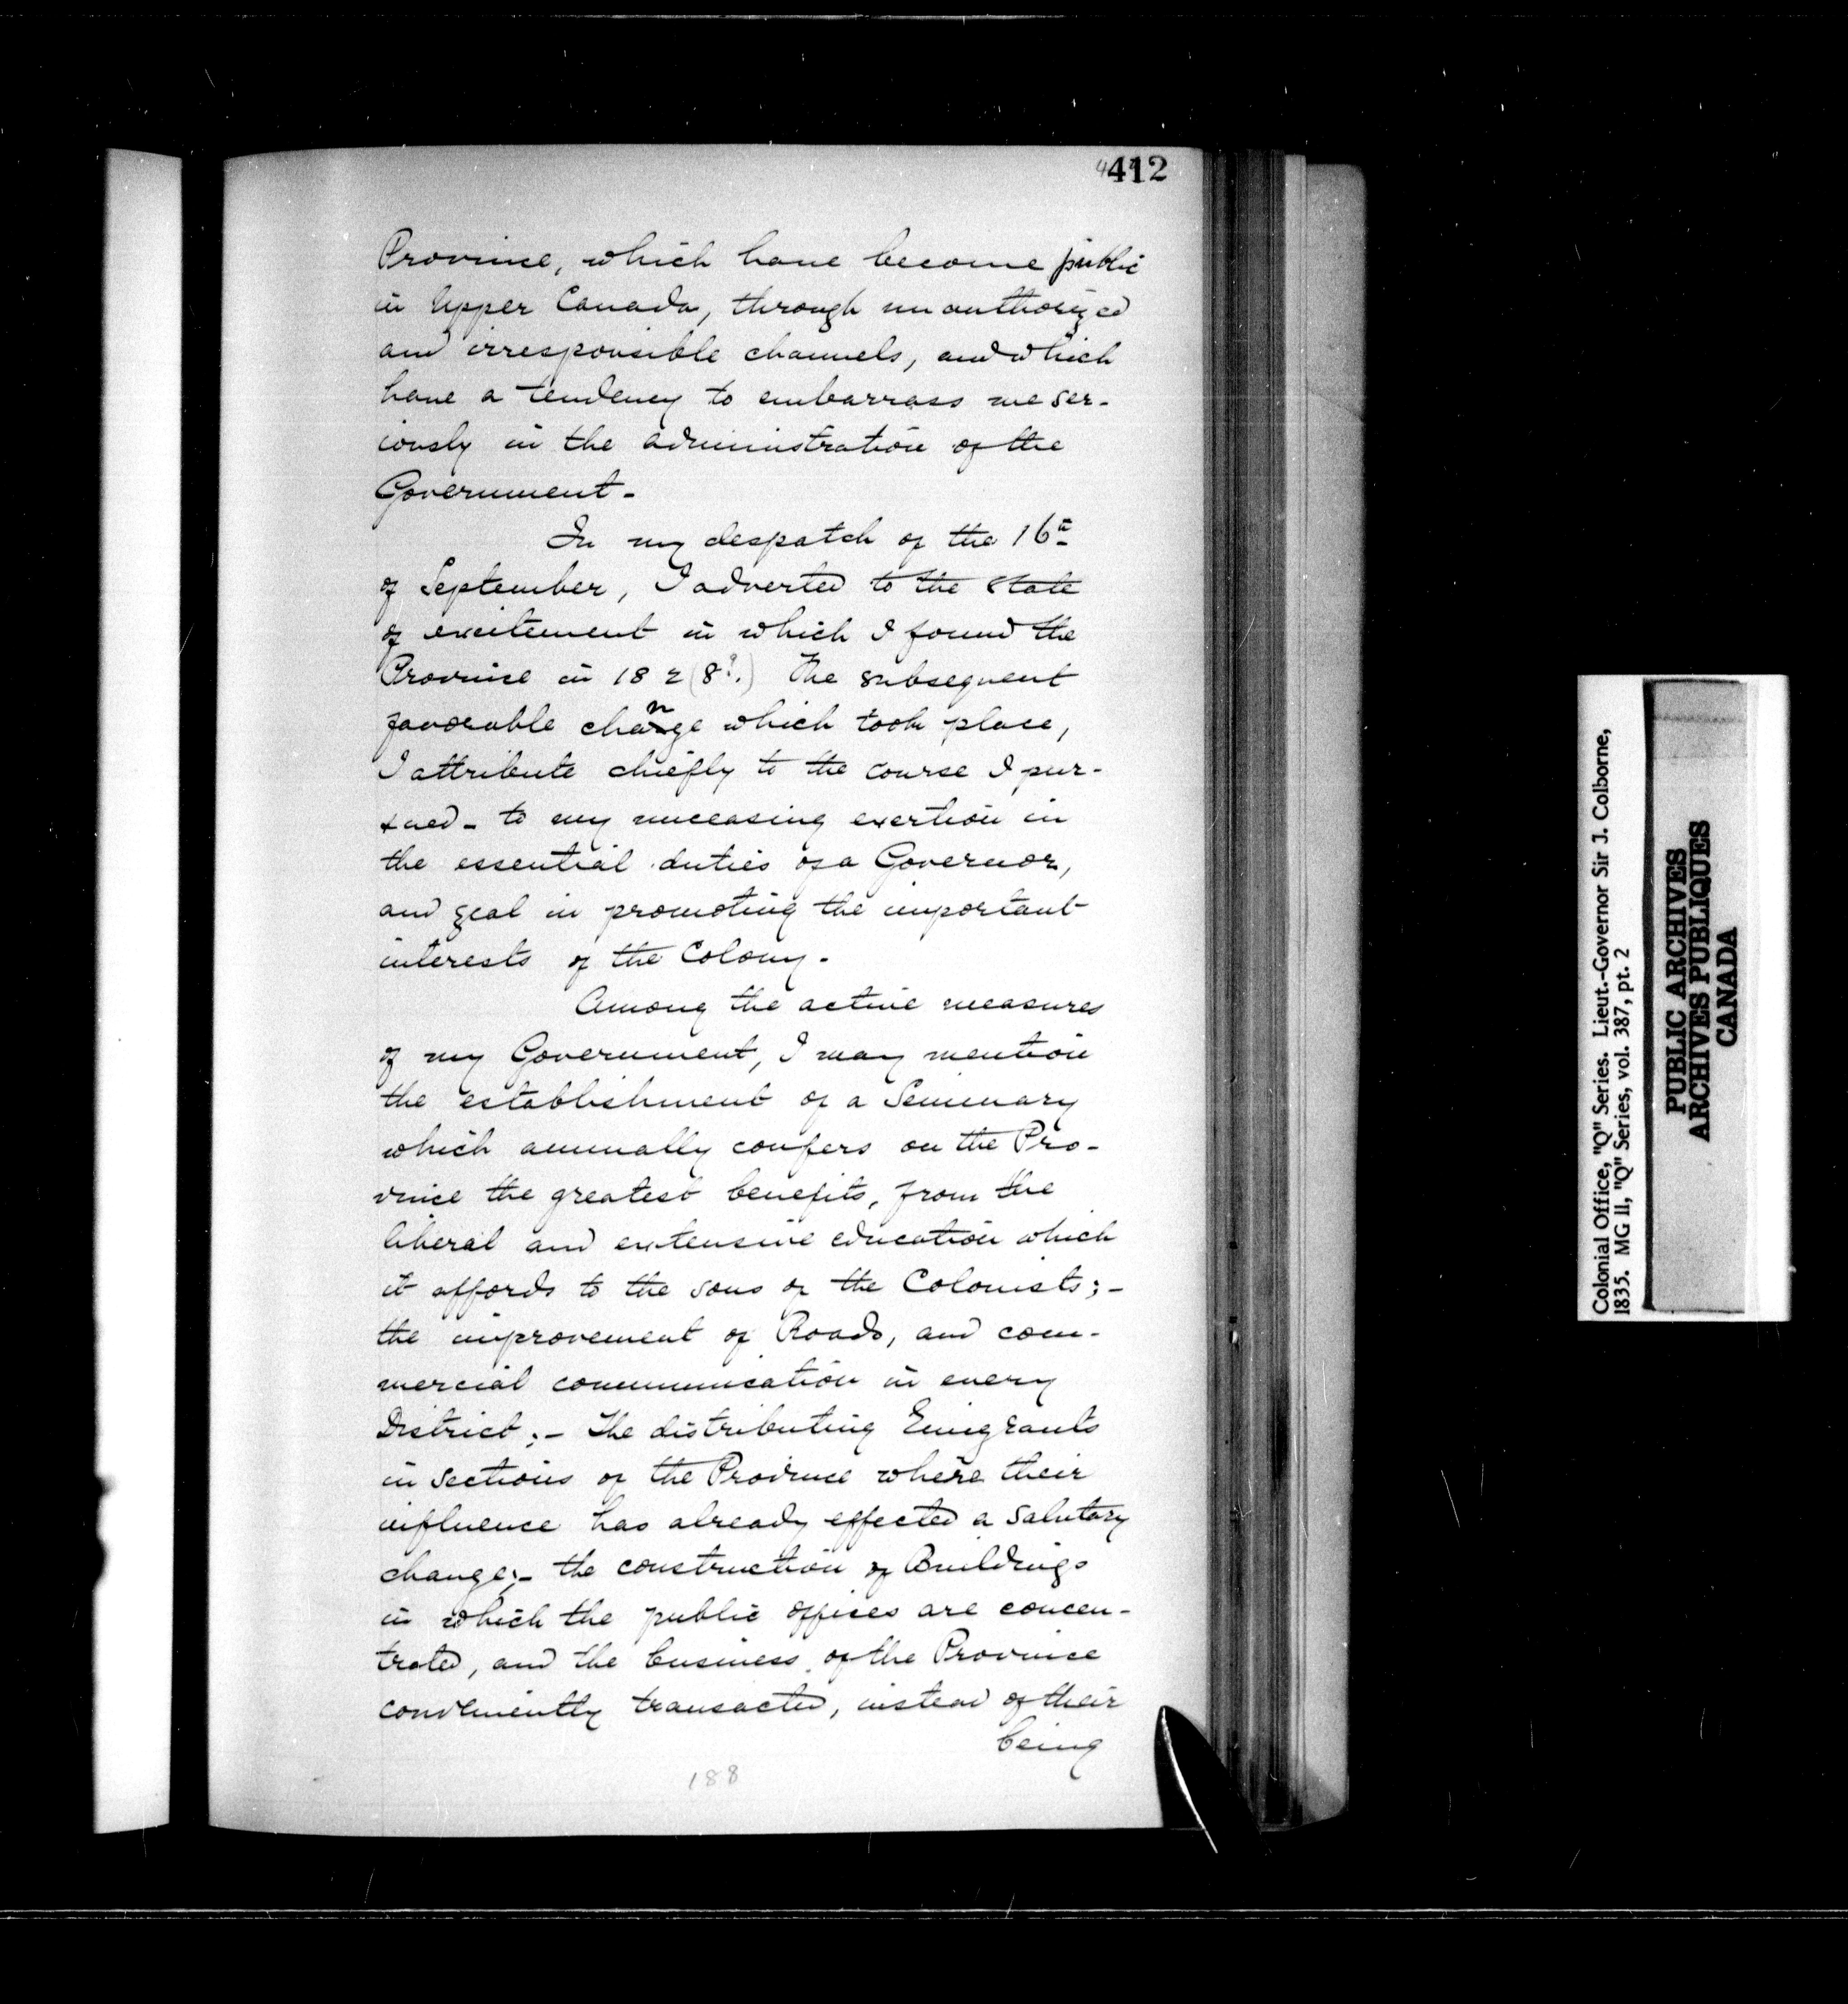 412
Province, which have become public
in Upper Canada, through unauthorized
and irresponsible channels, and which
have a tendency to embarrass me ser-
iously in the administration of the
Government -
In my despatch of the 16th
of September, I adverted to the state
of excitement in which I found the
Province in 182(8?.) The subsequent
favorable change which took place,
I attribute chiefly to the course I pur-
sued - to my unceasing exertion in
the essential duties of a Governor,
and zeal in promoting the important
interests of the Colony -
Among the active measures
of my Government, I may mention
the establishment of a Seminary
which annually confers on the Pro-
vince the greatest benefits, from the
liberal and extensive education which
it affords to the sons of the Colonists; -
the improvement of Roads, and com-
mercial communication in every
District; - The distributing Emigrants
in sections of the Province where their
influence has already effected a salutary
change; - the construction of Buildings
in which the public offices are concen-
trated, and the business of the Province
conveniently transacted, instead of their
being
188
Colonial Office, "Q" Series. Lieut.-Governor Sir J. Colborne,
1835. MG 11, "Q" Series, vol. 387, pt. 2
PUBLIC ARCHIVES
ARCHIVES PUBLIQUES
CANADA